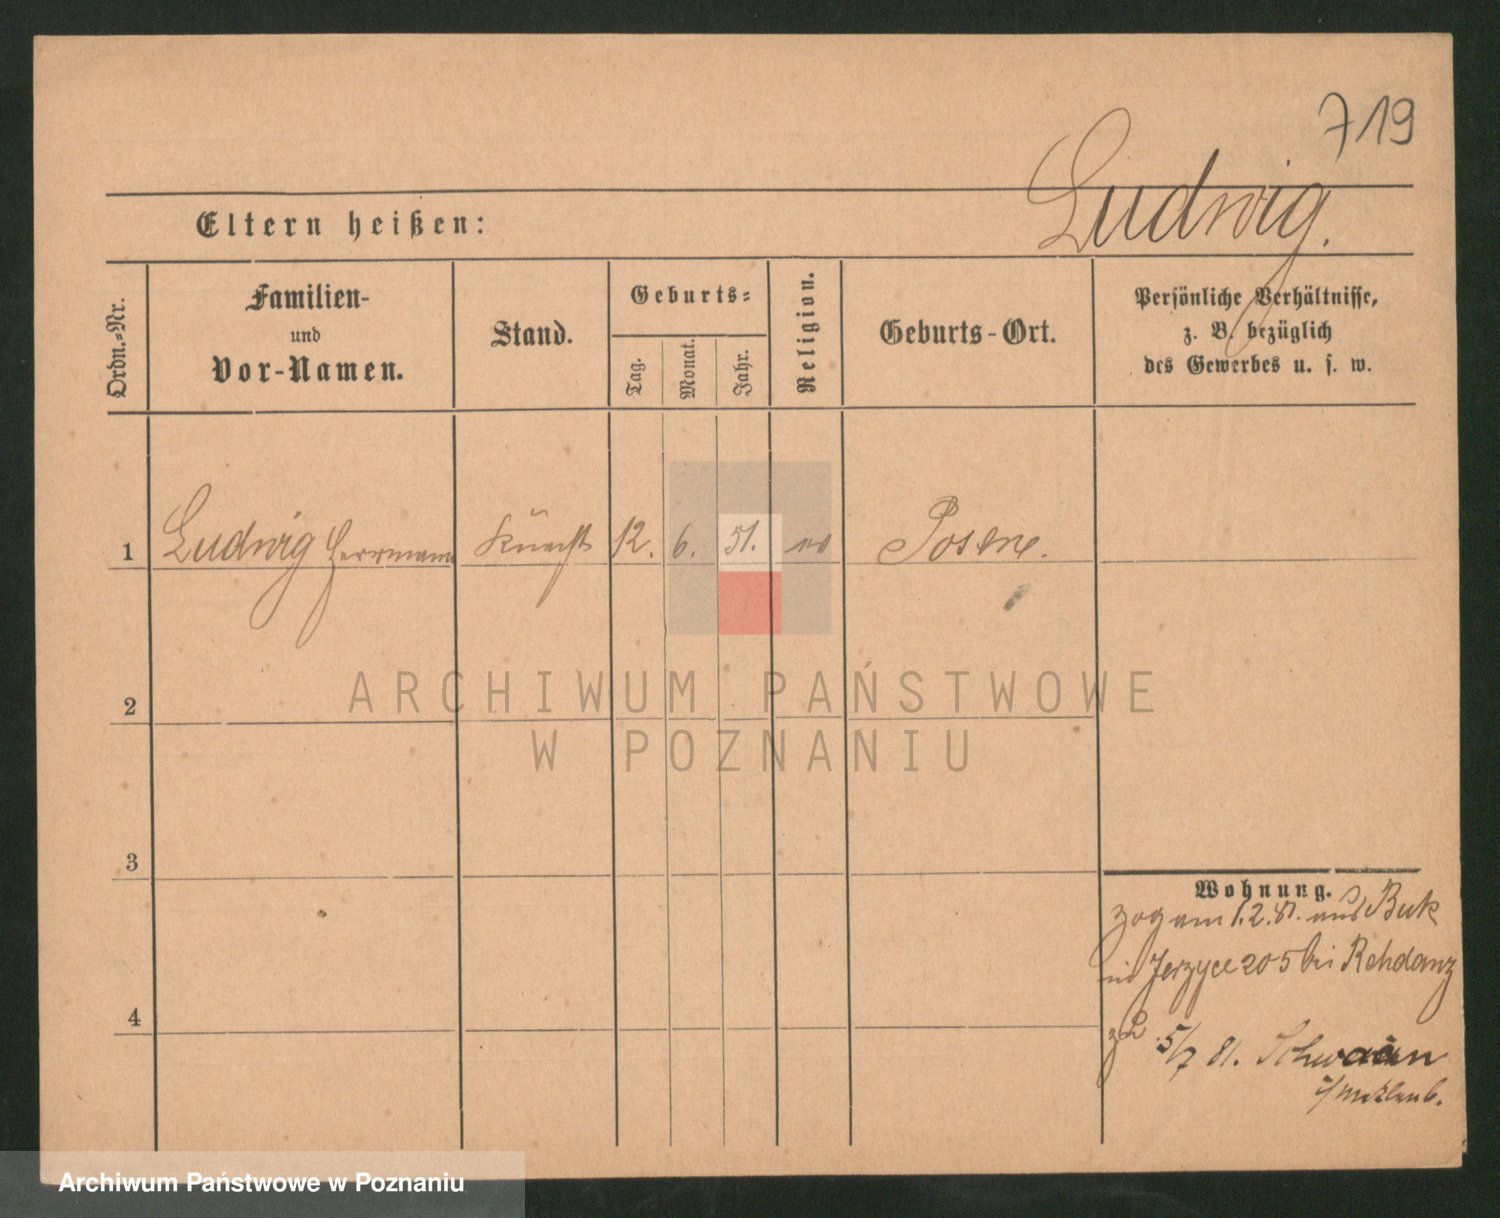 719
Ludwig.
Eltern heißen:
Ordn.-Nr.
Familien-
und
Vor-Namen.
Stand.
Geburts-
Tag.
Monat.
Jahr.
Religion.
Geburts-Ort.
Persönliche Verhältnisse,
z. B. bezüglich
des Gewerbes u. s. w.
1 Ludwig Herrmann Knecht 12. 6. 51. Posen.
2
3
4
ARCHIWUM PAŃSTWOWE
W POZNANIU
Wohnung.
zog am 1.2.81. aus Buk
in Jerzyce 205 bei Rehdanz
5/7 81. Schwaan
i/Meklenb.
Archiwum Państwowe w Poznaniu